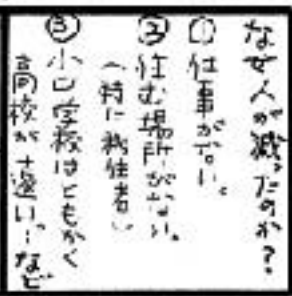 なぜ人が減ったのか?
①仕事がない。
②住む場所がない。
(特に移住者)
③小中学校はともかく
高校が遠い…など